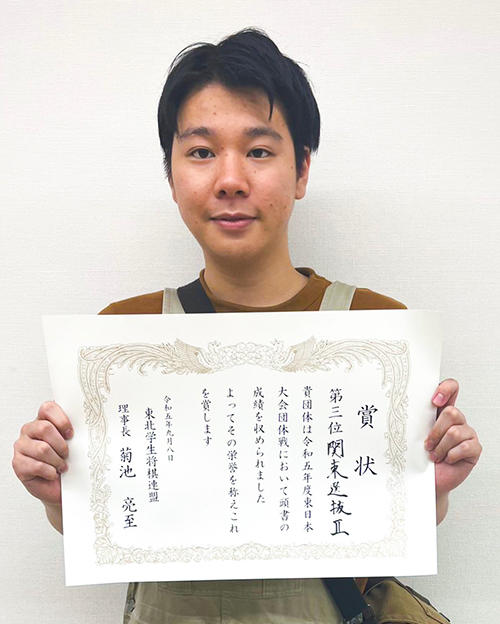 賞状
第三位 関東選抜Ⅱ
貴団体は令和五年度東日本
大会団体戦において頭書の
成績を収められました
よってその栄誉を称えこれ
を賞します
令和五年九月八日
東北学生将棋連盟
理事長 菊池 亮至